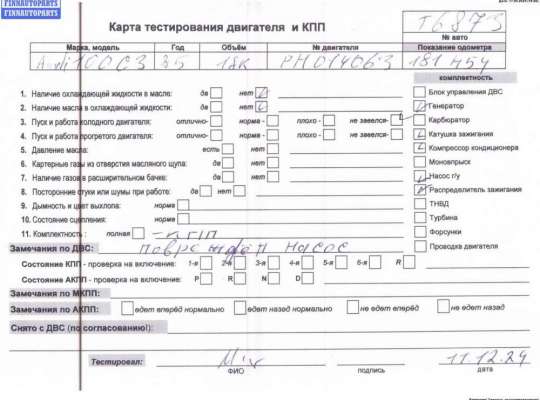 FINNAUTOPARTS
FINNAUTOPARTS
Карта тестирования двигателя и КПП
T6873
№ авто
Марка, модель Год Объём № двигателя Показание одометра
Audi 100C3 85 1.8к PH014063 181454
комплектность
1. Наличие охлаждающей жидкости в масле: да нет
2. Наличие масла в охлаждающей жидкости: да нет
3. Пуск и работа холодного двигателя: отлично- норма - плохо - не завелся-
4. Пуск и работа прогретого двигателя: отлично- норма - плохо - не завелся-
5. Давление масла: есть нет
6. Картерные газы из отверстия масляного щупа: да нет
7. Наличие газов в расширительном бачке: да нет
8. Посторонние стуки или шумы при работе: да нет
9. Дымность и цвет выхлопа: норма
10. Состояние сцепления: норма
11. Комплектность : полная - кпп
Блок управления ДВС
Генератор
Карбюратор
Катушка зажигания
Компрессор кондиционера
Моновпрыск
Насос г/у
Распределитель зажигания
ТНВД
Турбина
Форсунки
Проводка двигателя
Замечания по ДВС: насос
Состояние КПП - проверка на включение: 1-я 2-я 3-я 4-я 5-я 6-я R
Состояние АКПП - проверка на включение: P R N D
Замечания по МКПП:
Замечания по АКПП: едет вперёд нормально едет назад нормально не едет вперёд не едет назад
Снято с ДВС (по согласованию!):
Тестировал:
ФИО подпись дата
11.12.24